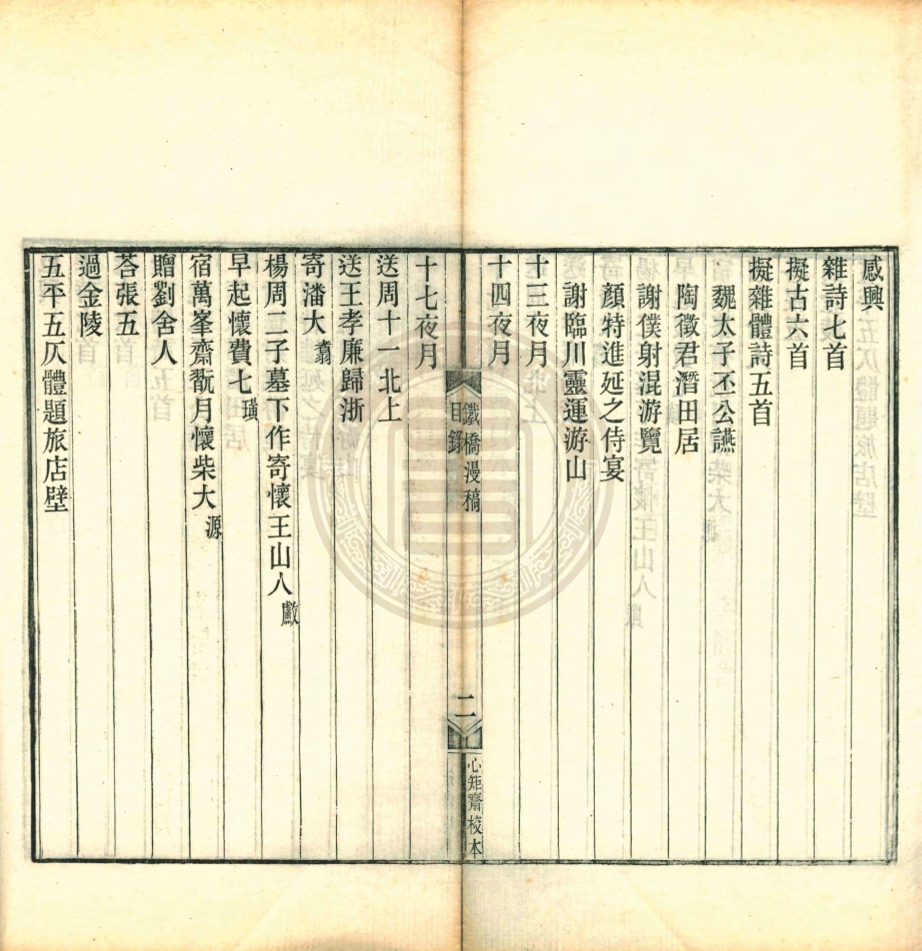 感興
雜詩七首
擬古六首
擬雜體詩五首
魏太子丕公讌
陶徵君潛田居
謝僕射混游覽
顏特進延之侍宴
謝臨川靈運游山
十三夜月
十四夜月
鐵橋漫稿
目錄
二
心矩齋校本
十七夜月
送周十一北上
送王孝廉歸浙
寄潘大
楊周二子墓下作寄懷王山人
早起懷費七璜
宿萬峯齋翫月懷柴大源
贈劉舍人
荅張五
過金陵
五平五仄體題旅店壁